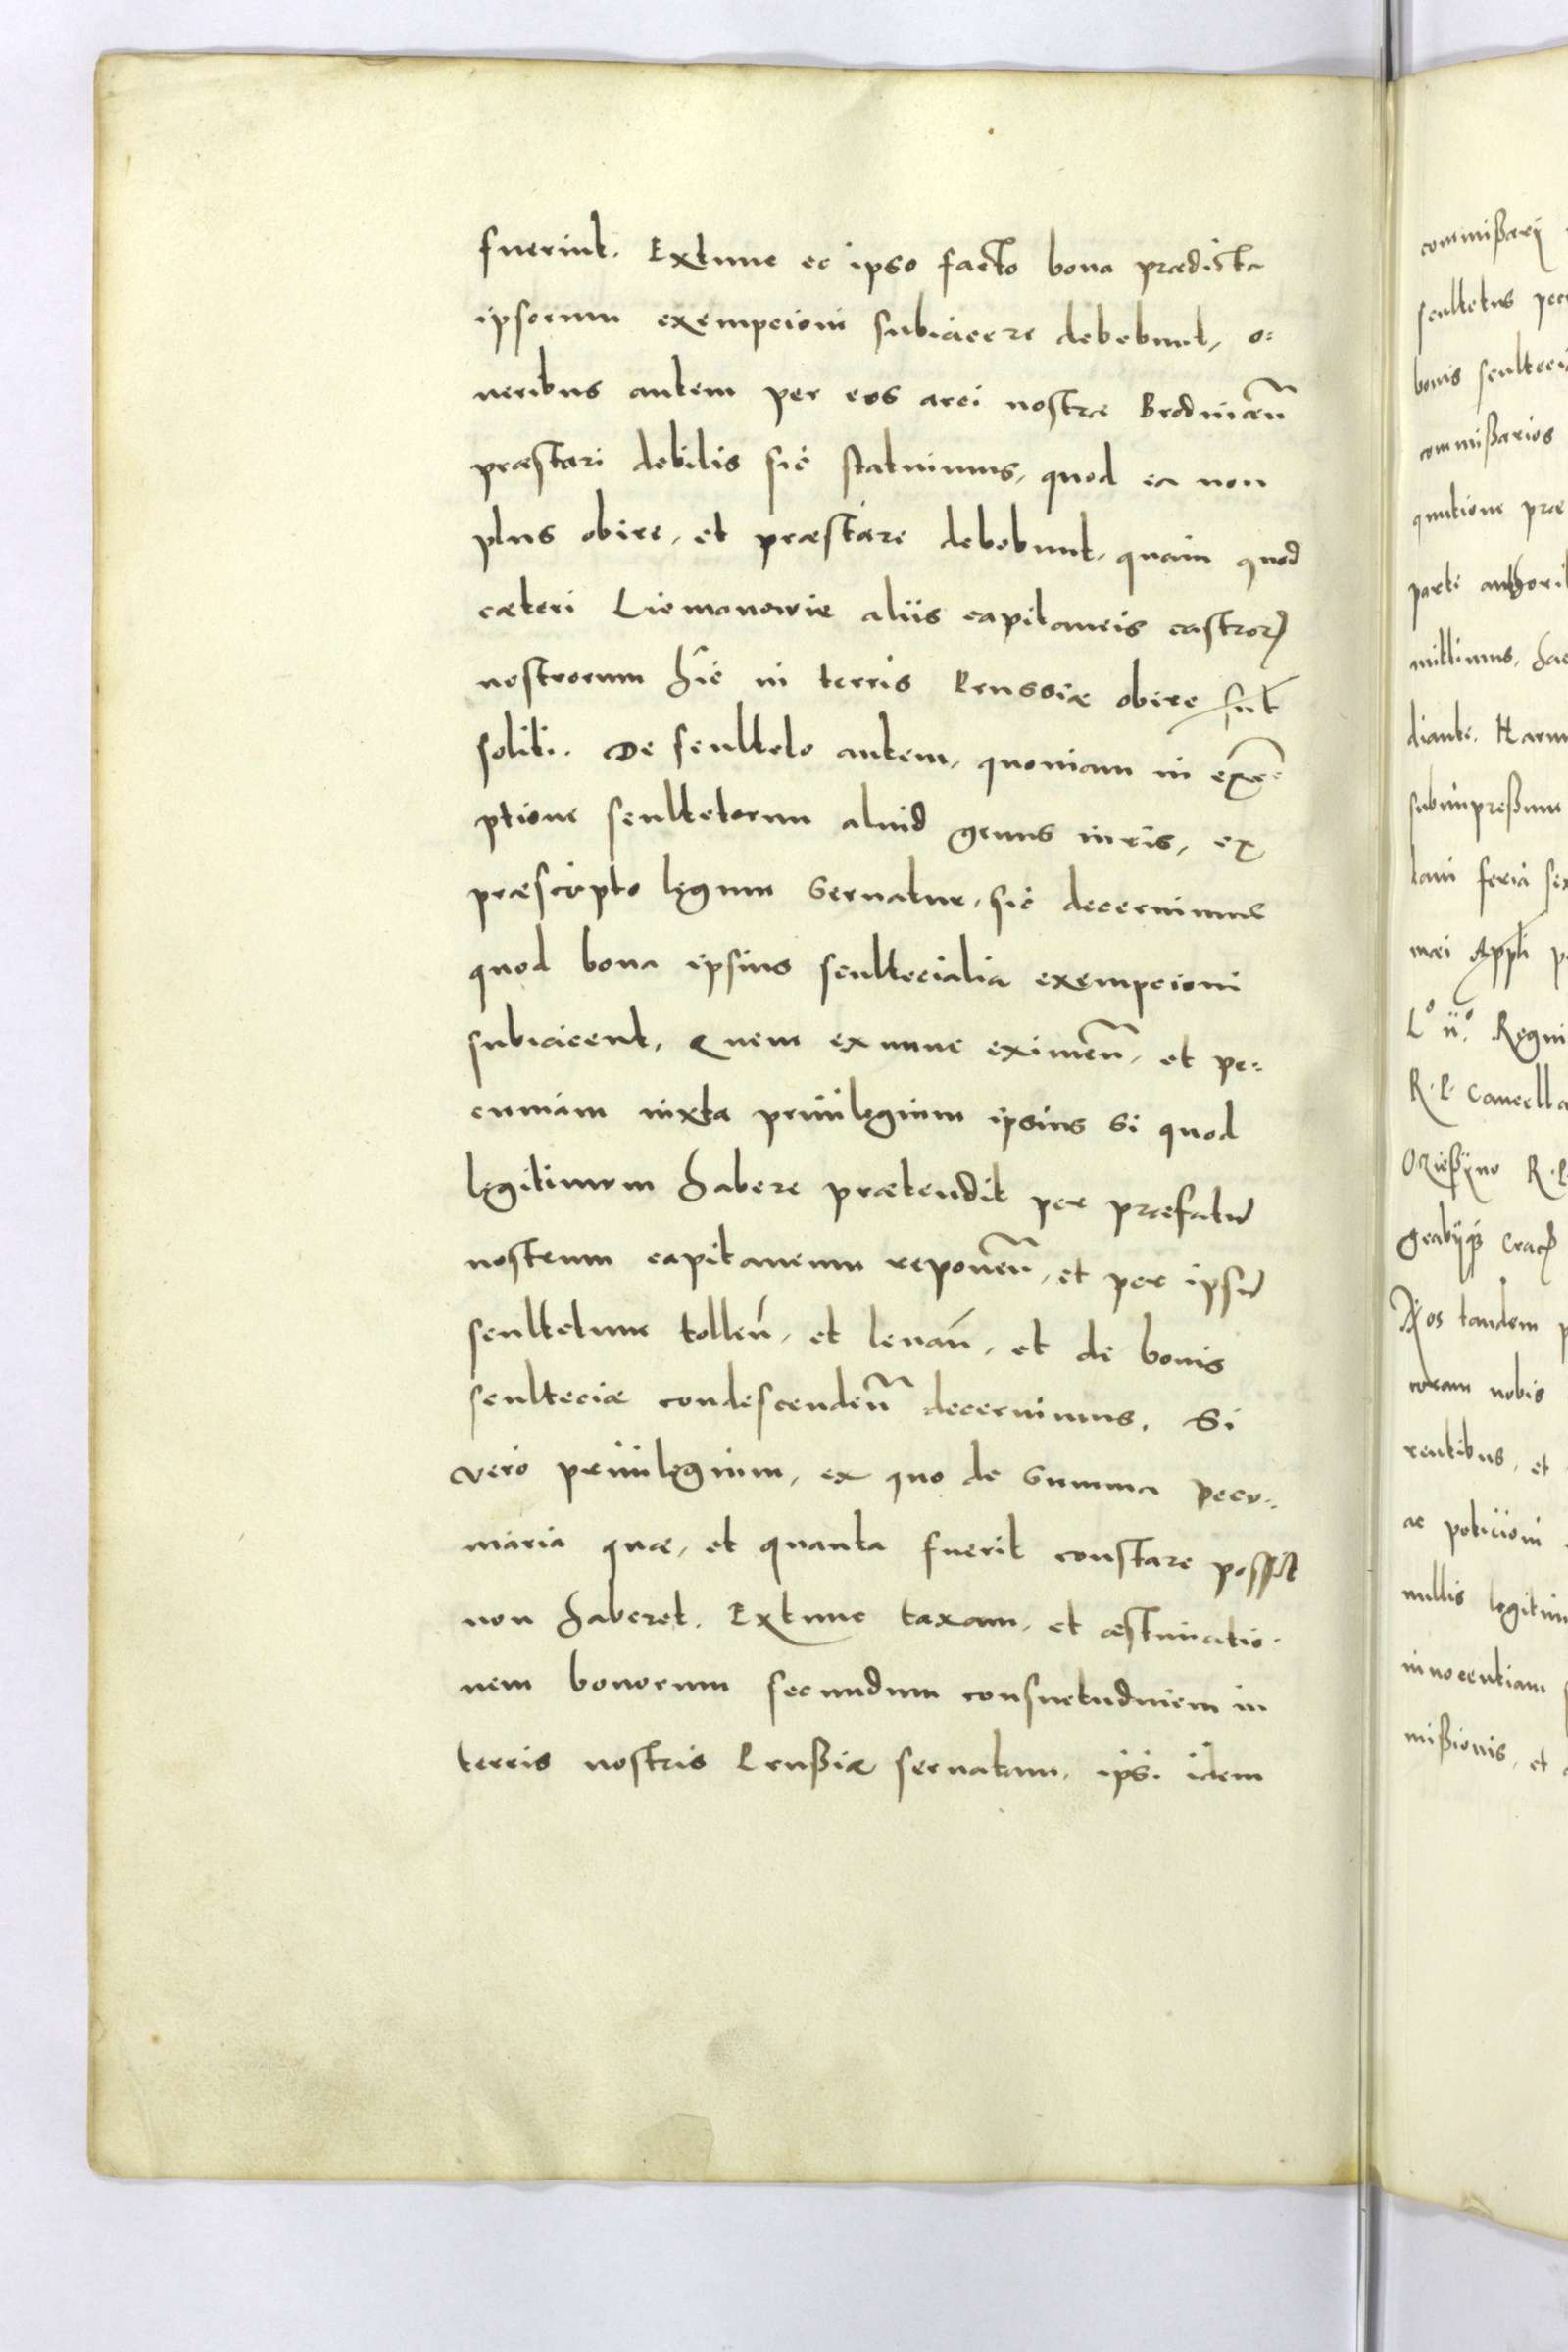 fuerint. Extunc ec ipso facto bona prædicta
ipsorum exempcioni subiacere debebunt, o=
neribus autem per eos arci nostræ Brodnicen̄
præstari debitis sic statuimus, quod ea non
plus obire, et præstare debebunt, quam quod
cæteri Liemanowie aliis capitaneis castror
nostrorum hic in terris Prussiæ obire sut̄
soliti. De sculteto autem, quoniam in exe=
ptione scultetorum aliud genus iuris, ex
præscripto legum seruatur, sic decernimus
quod bona ipsius scultecialia exempcioni
subiacent, Quem ex nunc eximen̄, et pe=
cuniam iuxta priuilegium ipsius si quod
legitimum habere prætendit per præfatū
nostrum capitaneum reponen̄, et per ipsū
scultetum tollen̄, et leuan̄, et de bonis
sculteciæ condescenden̄ decernimus. Si
vero priuilegium, ex quo de summa pecu=
niaria quæ, et quanta fuerit constare possit
non haberet. Extunc taxam, et æstimatio-
nem bonorum secundum consuetudinem in
terris nostris Prußiæ seruatam, ipsi idem
commißarij
scultetus pec
bonis sculteci
commißarios
qnutione præ
parti authorit
mittimus, hac
diante. Harum
subimpreßum
tani feria sex
mæi Appłi p
L° ii° Regni
R. P. Cancella
Ozießijno R. P
Nos tandem p
coram nobis
rentibus, et
ac peticioni
nullis legitim
innocentiam
mißionis, et